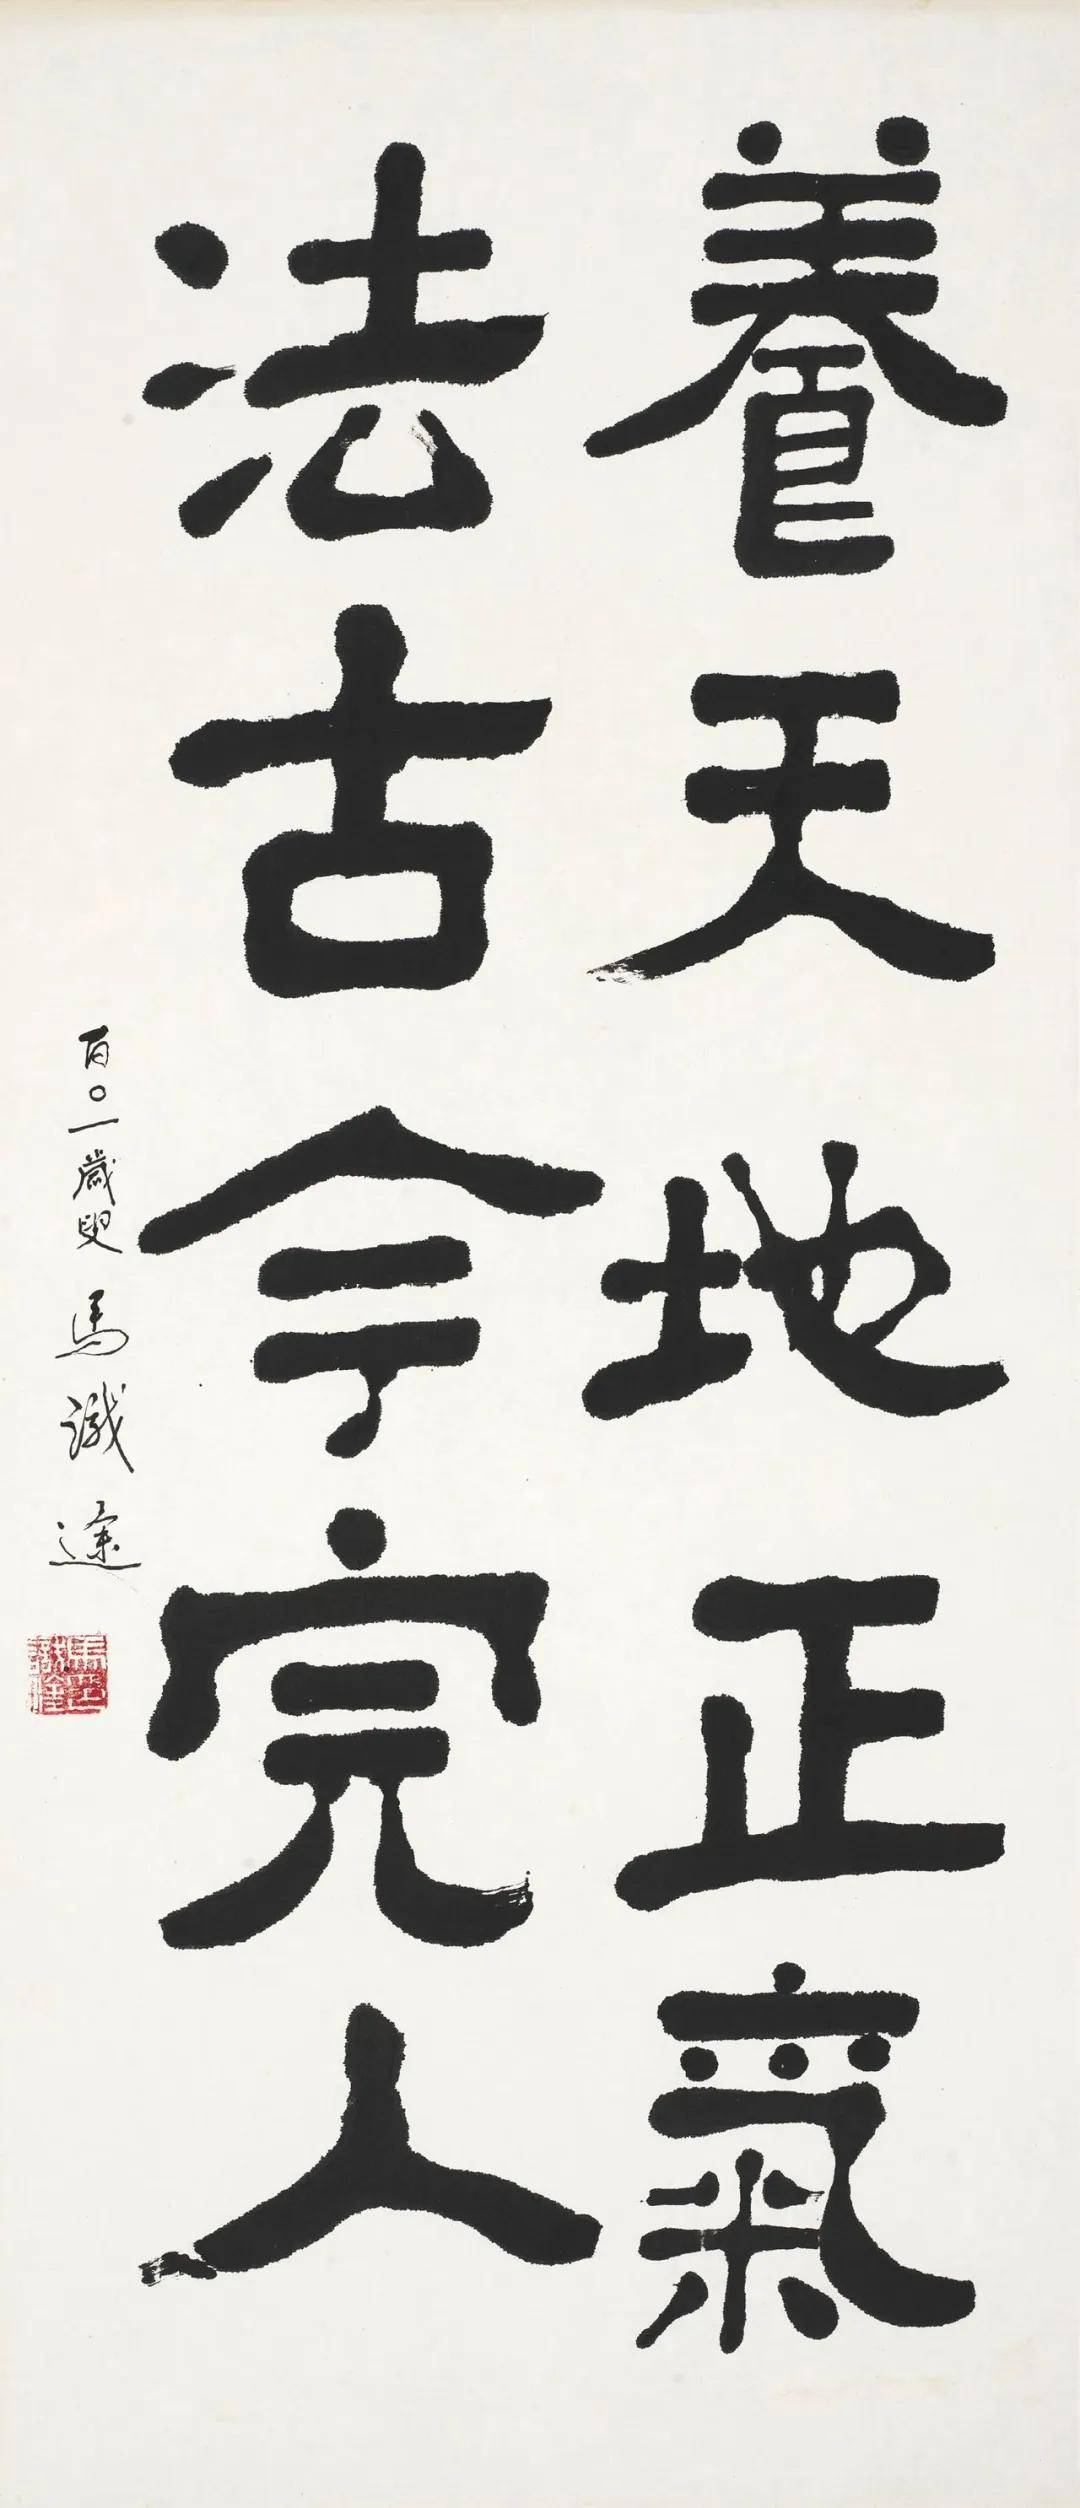 養天地正氣
法古今完人
百〇一歲叟 馬識途